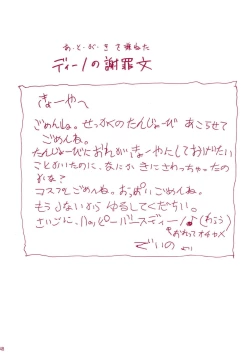 あ・と・が・き を兼ねた
ディーノの謝罪文
きょーやへ
ごめんね。せっかくのたんじょーび おこらせて
ごめんね。
たんじょーびにおれが きょーやにしてあげたい
ことがいたのに、なにか きにさわっちゃったの
かな？
コスプレごめんね。おっぱいごめんね。
もうしないから ゆるしてください。
さいごに、ハッピーバースディー♪(わらう)
でいの